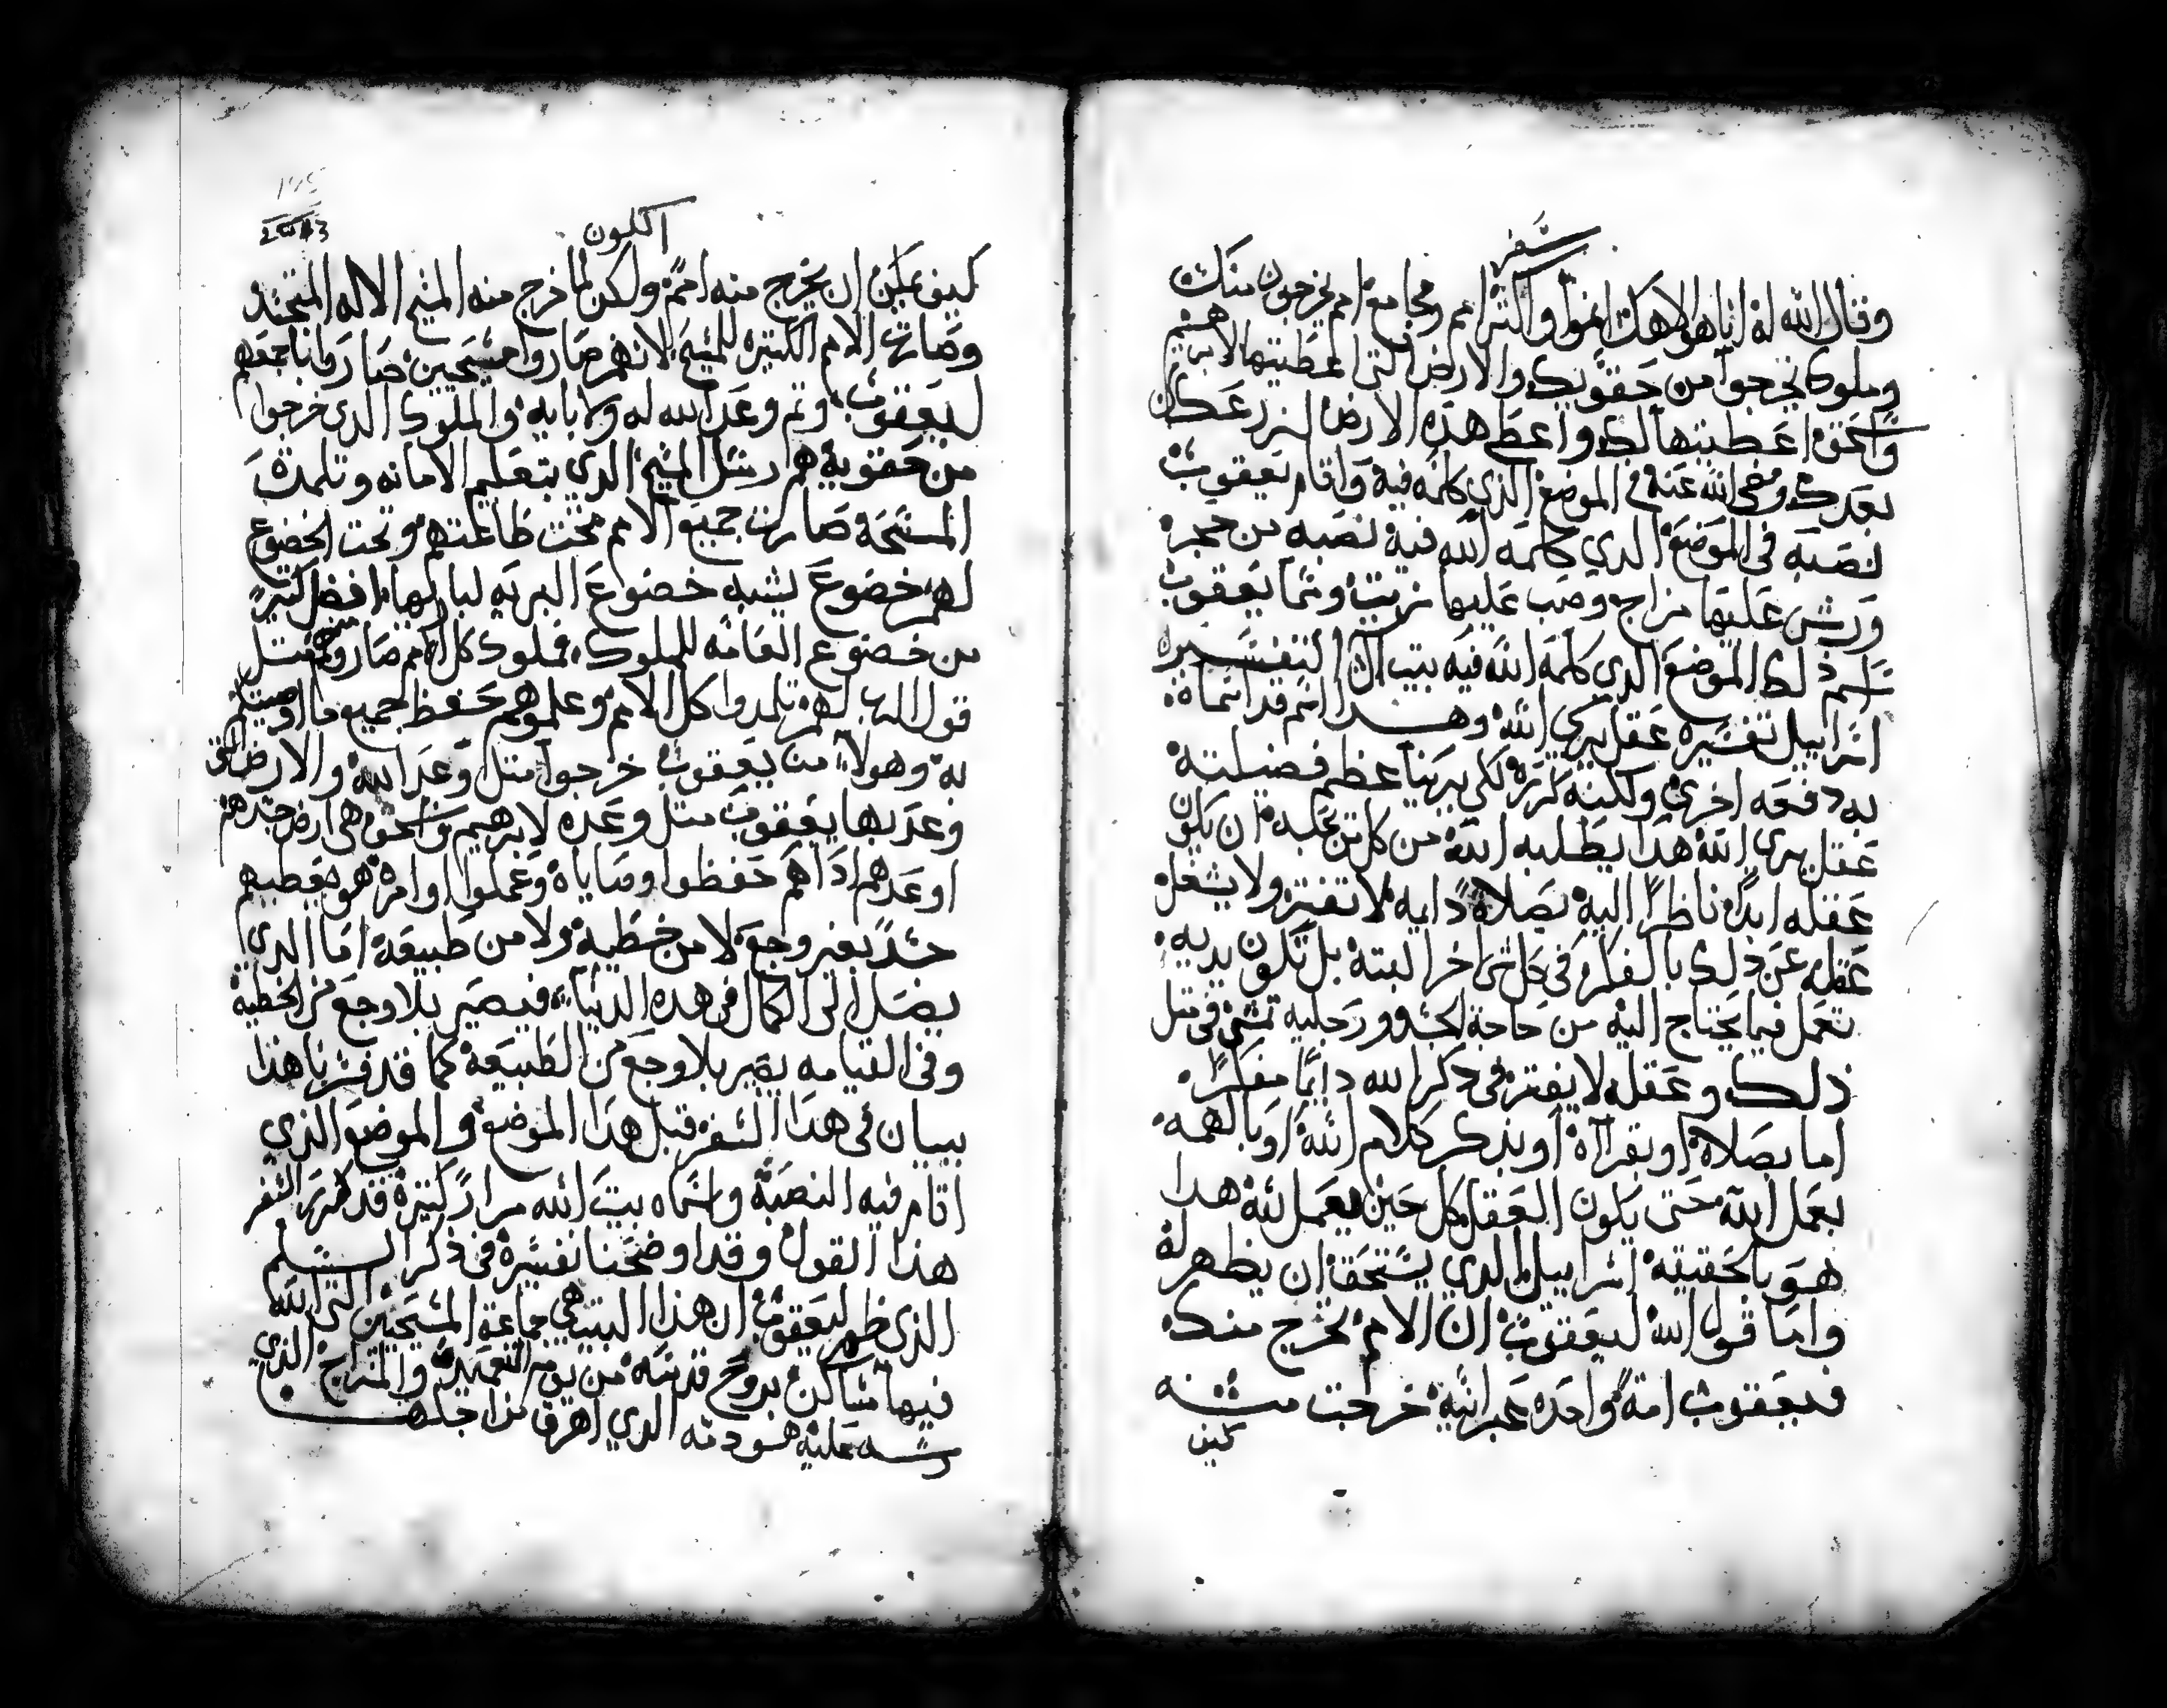 سفر
وقال الله له انا هو الاهك انموا واكثر امم ومجامع امم يخرجون منك
وملوك يخرجوا من حقويك والارض التي اعطيتها لابرهيم
واسحق اعطيتها لك واعطي هذه الارض لزرعك من
بعدك ومضى الله عنه في الموضع الذي كلمه فيه واقام يعقوب
نصبه في الموضع الدي كلمه الله فيه نصبه من حجر
ورش عليها مزاج وصب عليها زيت وسما يعقوب
اسم ذلك الموضع الدي كلمه الله فيه بيت ال التفسير
اسراييل تفسيره عقل يري الله وهدا الاسم قد اسماه
به دفعه اخري ولكنه كرره لكي يرينا عظم فضيلته
عقل يري الله هدا يطلبه الله من كل من يحبه ان يكون
عقله ابدا ناظرا اليه بصلاه دايمه لا تفتر ولا يشغل
عقله عن دلك بالفكر في كل شي اخر البته بل تكون يديه
تعمل فيما يحتاج اليه من حاجة الجسد ورجليه تمشي في مثل
ذلك وعقله لا يفتر في ذكر الله دايما مفكرا
اما بصلاة او بقراآة او بذكر كلام الله او بالهمه
بعمل الله حتى يكون العقل كل حين يعمل لله هدا
هو بالحقيقة اسراييل الدي يستحق ان يظهر له
واما قول الله ليعقوب ان الامم تخرج منك
فيعقوب امة واحده عبرانية خرجت منه
كيف
اللون
كيف يمكن ان يخرج منه امم ولكن لما خرج منه المسيح الاله المتجسد
وصارت الامم الكتيره للمسيح لانهم صاروا مسيحيين صاروا باجمعهم
ليعقوب وتم وعد الله له ولابايه والملوك الدي خرجوا
من حقويه هم رسل المسيح الدي بتعليم الامانه وتلمدة
المسيحة صارت جميع الامم تحت طاعتهم وتحت الخضوع
لهم خضوع يشبه خضوع البريه لباريها افضل كتير
من خضوع العامه للملوك فملوك كل الامم صاروا متل
قول الله لهم تلمدوا كل الامم وعلموهم بحفظ جميع ما اوصيتكم
به وهولا من يعقوب خرجوا متل وعد الله والارض التي
وعد بها يعقوب متل وعده لابرهيم واسحق هي ارض جسدهم
اوعدهم ادا هم حفظوا وصاياه وعملوا اوامره هو يعطيهم
جسد بغير وجع لا من خطية ولا من طبيعة اما الدي
يصل الى الكمال في هده الدنيا فيصير بلا وجع من الخطية
وفي القيامه يصير بلا وجع من الطبيعة كما قد فسرنا هذا
ببيان في هدا السفر قبل هدا الموضع والموضع الذي
اقام فيه النصبة واسماه بيت الله مرارا كتيرة قد كرر السفر
هذا القول وقد اوضحنا تفسيره في ذكر السلم
الذي ظهر ليعقوب ان هذا البيت هي جماعة المسيحيين التي الله
فيها ساكن بروح قدسه من يوم التعميد والمزاج الذي
رشه عليه هو دمه الدي اهرق من اجلها